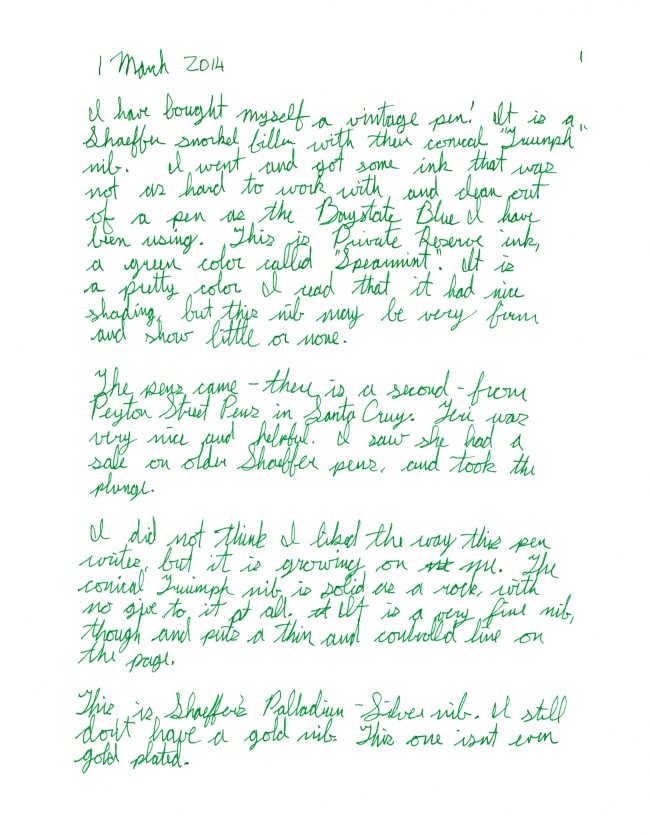 1 March 2014
1
I have bought myself a vintage pen! It is a
Shaeffer snorkel filler with their conical "Triumph"
nib. I went and got some ink that was
not as hard to work with and clean out
of a pen as the Baystate Blue I have
been using. This is Private Reserve ink,
a green color called "Spearmint". It is
a pretty color I read that it had nice
shading, but this nib may be very firm
and show little or none.
The pens came - there is a second - from
Peyton Street Pens in Santa Cruz. Teri was
very nice and helpful. I saw she had a
sale on older Shaeffer pens, and took the
plunge.
I did not think I liked the way this pen
writes, but it is growing on me. The
conical Triumph nib is solid as a rock, with
no give to it at all. It is a very fine nib,
though and puts a thin and controlled line on
the page.
This is Shaeffer's Palladium-Silver nib. I still
don't have a gold nib. This one isnt even
gold plated.